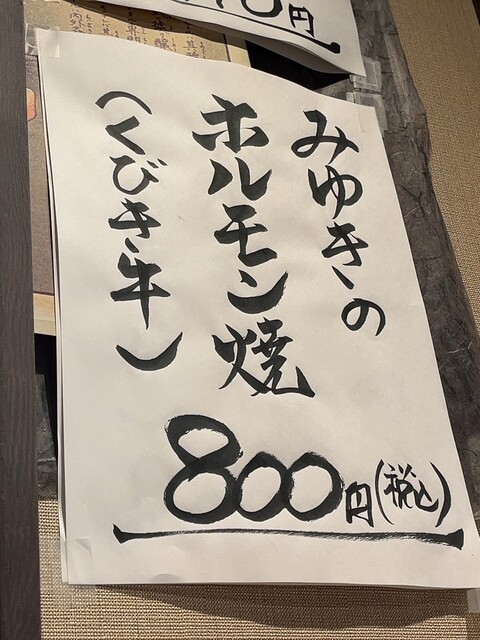 みゆきの
ホルモン焼
(くびき牛)
800円(税込)
0円